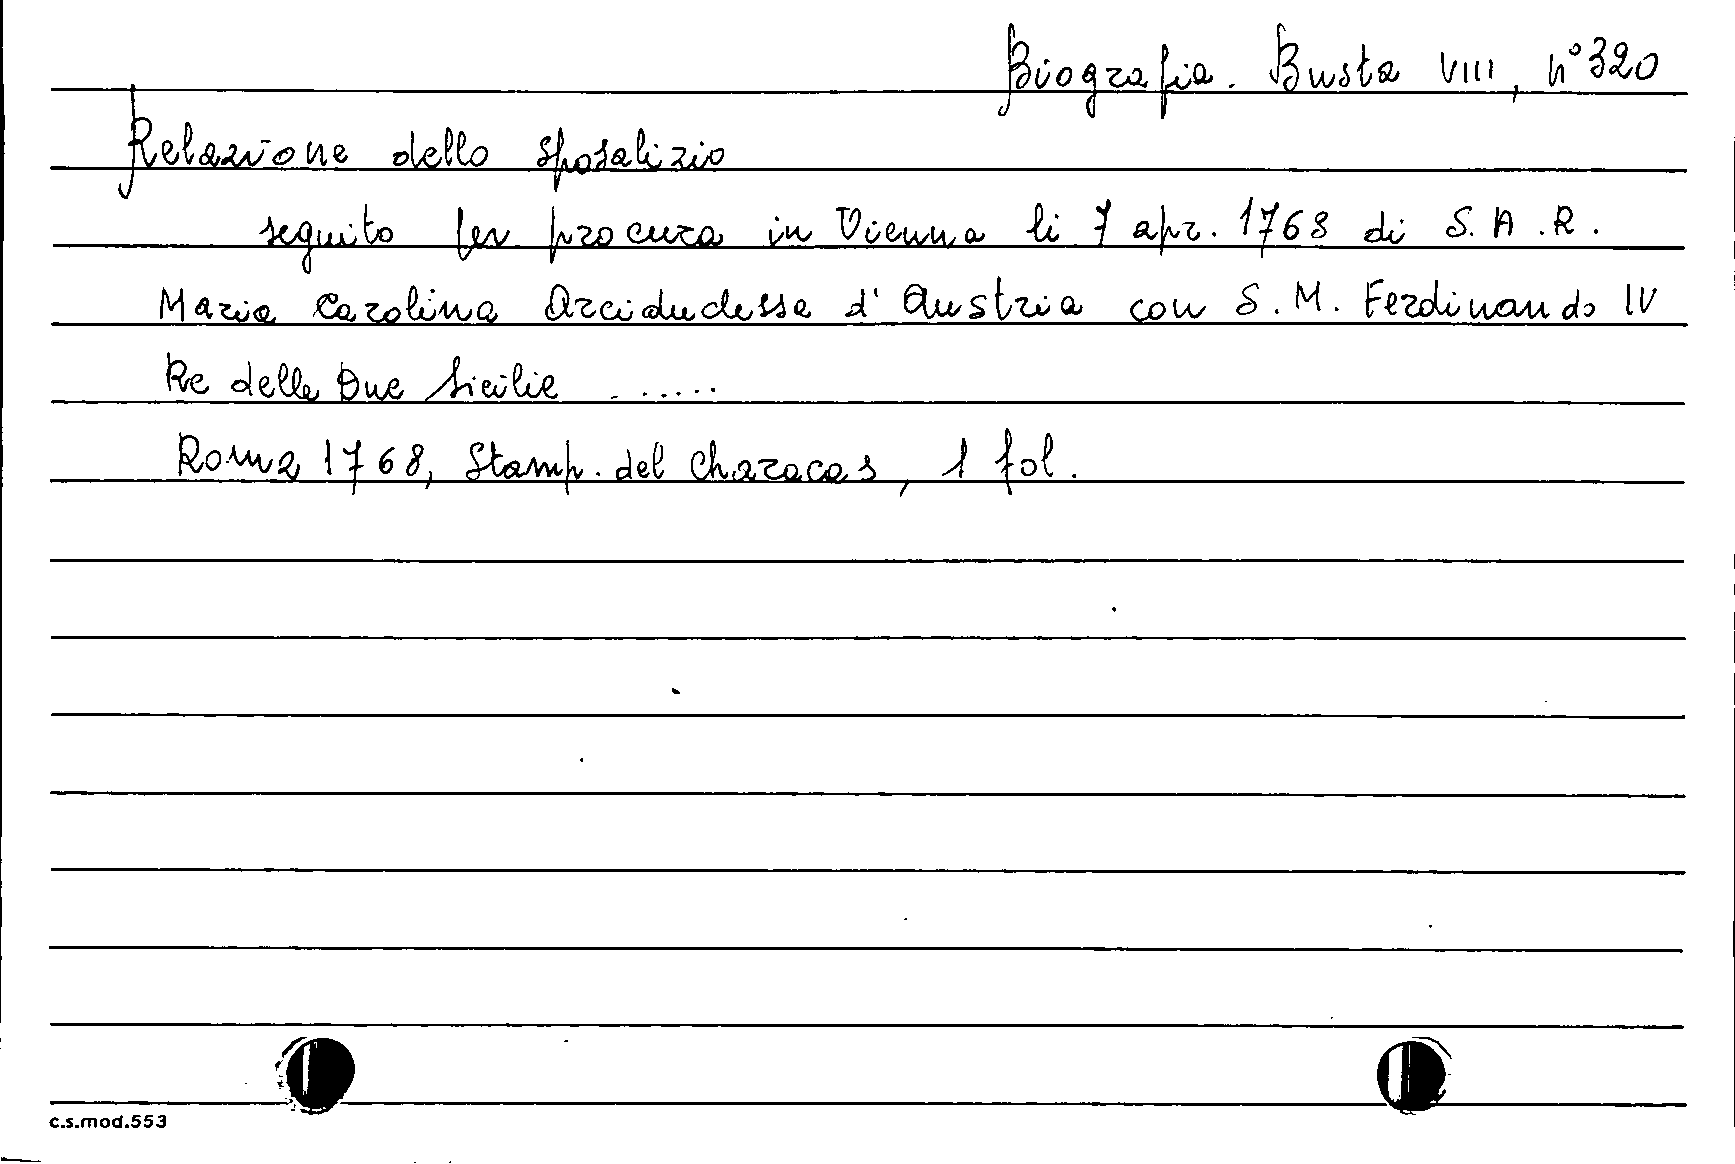 Biografia. Busta VIII, n° 320
Relazione dello sposalizio
seguito per procura in Vienna li 7 apr. 1768 di S.A.R.
Maria Carolina Arciduchessa d'Austria con S.M. Ferdinando IV
Re delle Due Sicilie ......
Roma 1768, Stamp. del Chracas, 1 fol.
c.s.mod.553